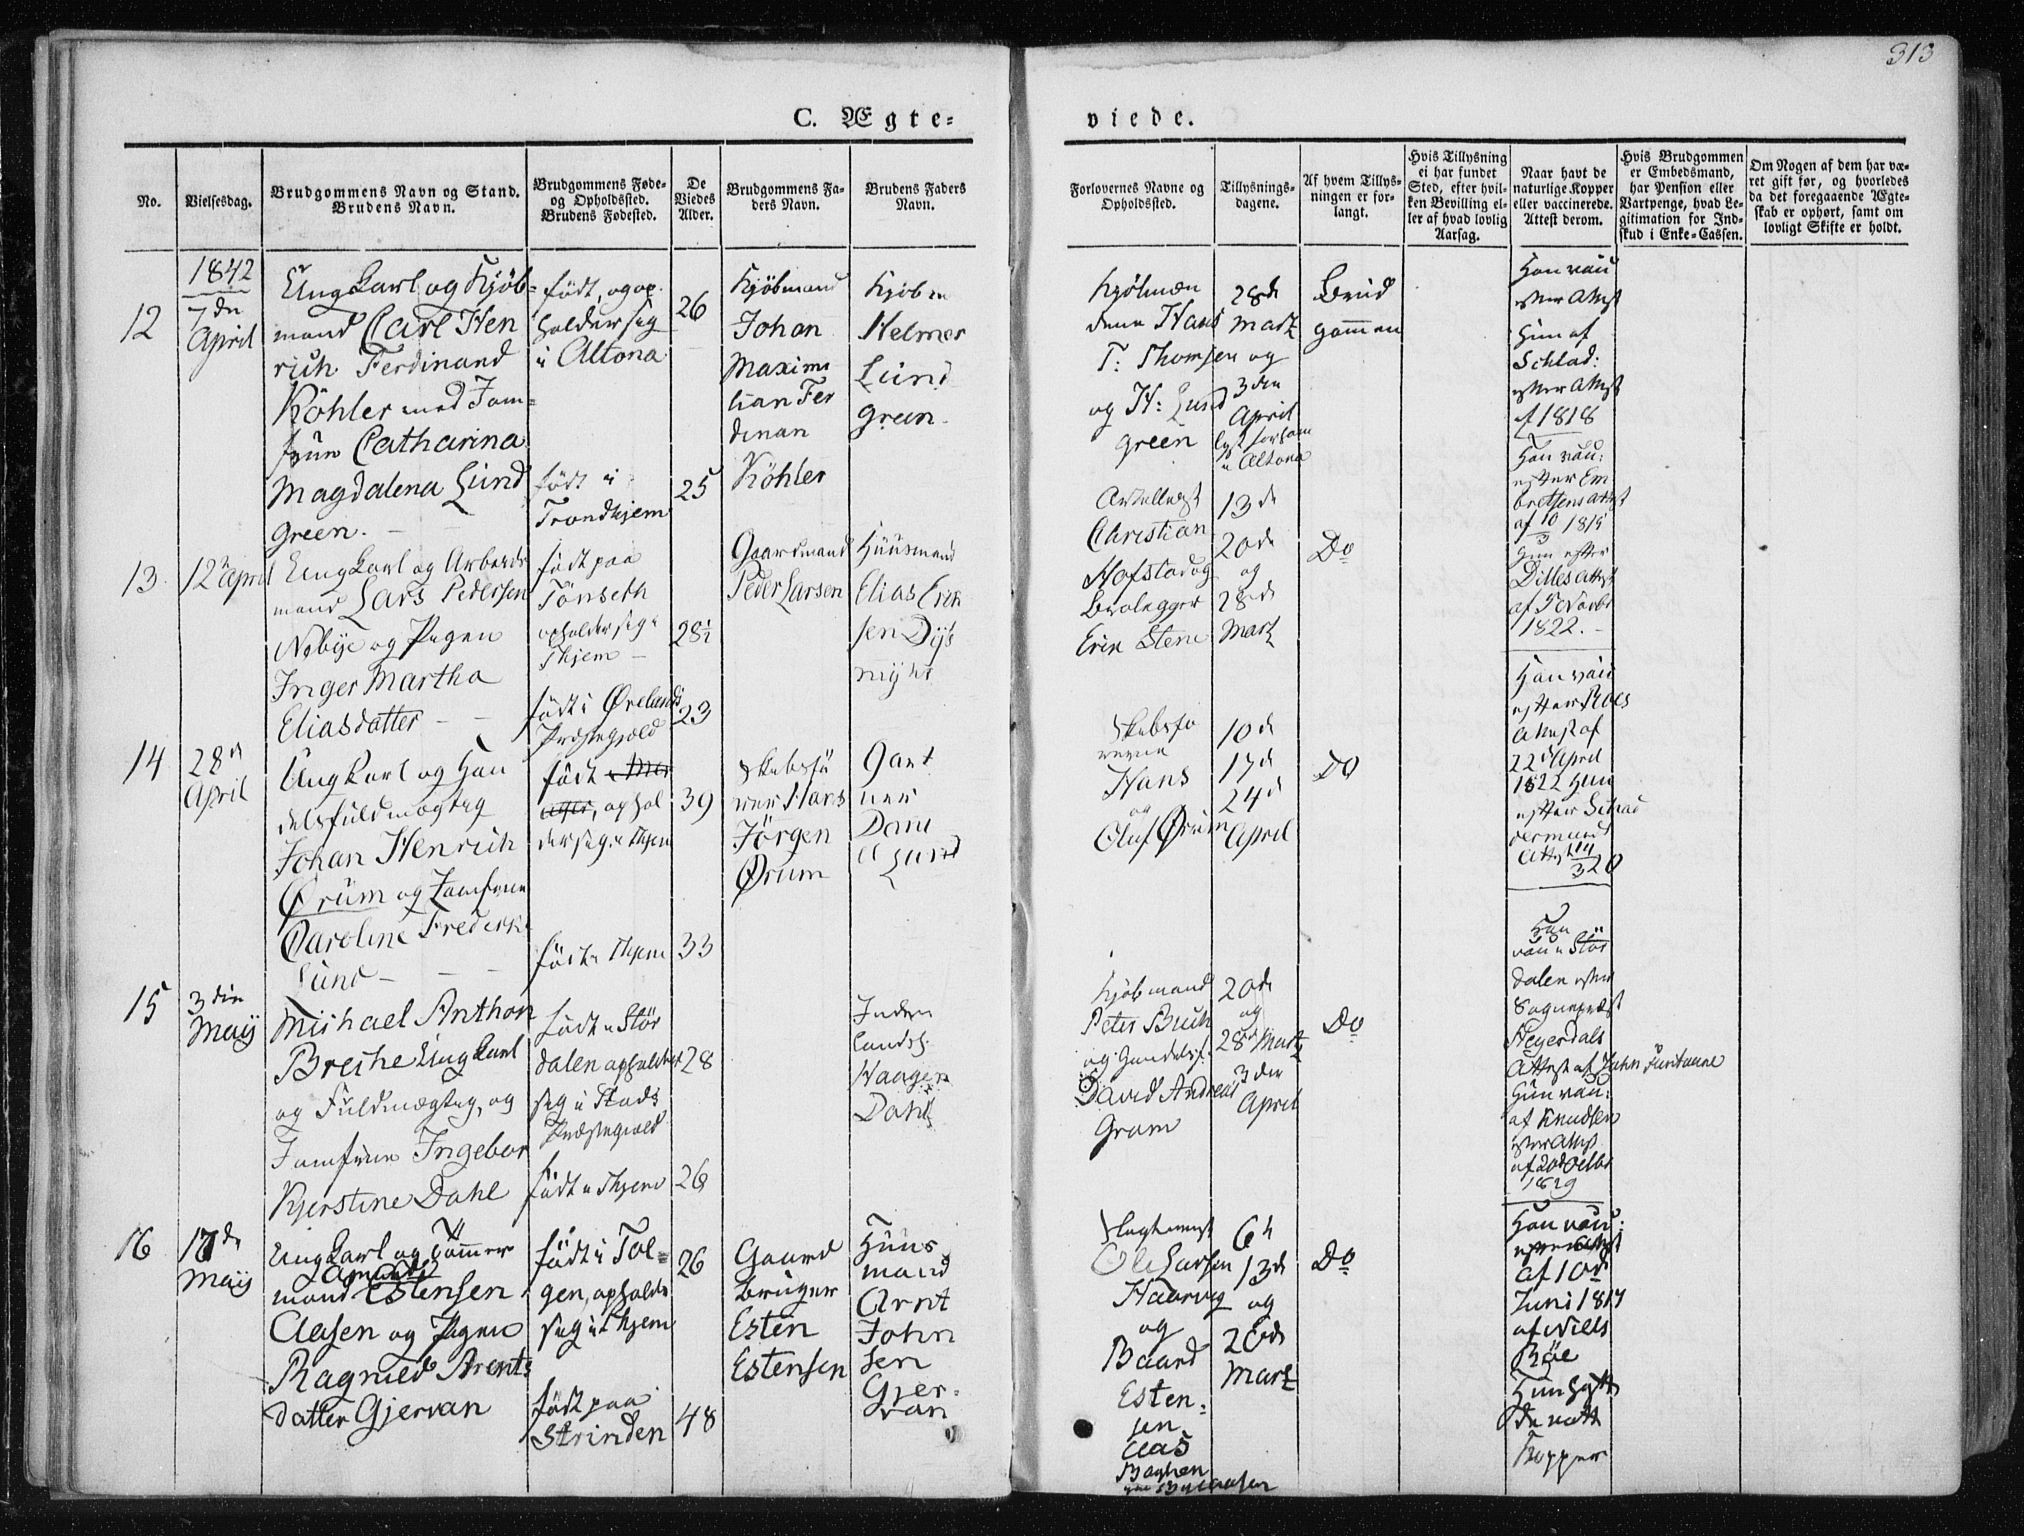 313
C. Ægte=
viede.
No.
Vielsesdag.
Brudgommens Navn og Stand.
Brudens Navn.
Brudgommens Føde-
og Opholdssted.
Brudens Fødested.
De
Viedes
Alder.
Brudgommens Fa-
ders Navn.
Brudens Faders
Navn.
Forlovernes Navne og
Opholdssted.
Tillysnings-
dagene.
Af hvem Tillys-
ningen er for-
langt.
Hvis Tillysning
ei har fundet
Sted, efter hvil-
ken Bevilling el-
ler af hvad lovlig
Aarsag.
Naar havt de
naturlige Kopper
eller vaccinerede.
Attest derom.
Hvis Brudgommen
er Embedsmand,
har Pension eller
Vartpenge, hvad Le-
gitimation for Ind-
skud i Enke-Cassen.
Om Nogen af dem har væ-
ret gift før, og hvorledes
da det foregaaende Ægte-
skab er ophørt, samt om
lovligt Skifte er holdt.
1842
12
7de
April
Ungkarl og Kjöb-
mand Carl Hen
rich Ferdinand
Köhler med Jom=
frue Catharina
Magdalena Lund
green.
födt, og op
holder sig
i Altona
födt i
Trondhjem
26
25
Kjöbmand
Johan
Maximi
lian Fer
dinan
Köhler
Kjöbm
Helmer
Lund
green
Kjøbmæn
dene Hans
T: Thomsen
og H: Lund
green
28de
Martz
og
3den
April
i Altona
Brud
gommen
Han vau
efter Attest
Hun af
Schlad:
efter Attest
af 1818
13
12 April
Ungkarl og Arbeids
mand Lars Pedersen
Nobye og Pigen
Inger Martha
Eliasdatter
födt paa
Tönseth
opholder sig i
Thjem
födt i Ørelands
Præstegjæld
28½
23
Gaardmand
Peder Larsen
Huusmand
Elias Erik
sen
Christian
Hofstad og
Brolegger
Erik Stene
13de
20de
og
28de
Martz
Do
Han vau:
efter Em
bretsens Attest
af 10/3 1815
Hun efter
Dilles Attest
af
1822.
14
28de
April
Ungkarl og Han
delsfuldmægtig
Johan Henrich
Ørum og Jomfrue
Caroline Frederik
Lund
födt
opholder
der sig i Thjem
födt i Thjem
39
33
Skibsfö
rer Hans
Jörgen
Ørum
Gart
ner
Dani
el Lund
Skibsfø
rerne
Hans
og
Oluf Ørum
10de
17de
24de
April
Do
Han vau
efter Roes
Attest af
22de April
1822 Hun
efter
Attest
15
3die
Maij
Michael Anthon
Breche Ungkarl
og Fuldmægtig, og
Jomfrue Ingebor
Kjerstine Dahl
födt i Stör
dalen opholder
sig i Stads
Præstegjæld
födt i Thjem
28
26
Haagen
Dahl
Kjøbmand
Peter Bruch
og Handelsf.
David Andreas
Gram
20de
og
28de Martz
3die
April
Do
Han
vau i Stör
dalen efter
Sognepræst
Heyerdals
Attest af
Hun vau:
af Knudsen
efter Attest
af 20de Octbr
1829
16
17de
Maij
Ungkarl og Tömmer
mand Amund Estensen
Aasen og Pigen
Ragnild Arents
datter Gjervan
födt i Tol=
gen, opholder
sig i Thjem
födt paa
Strinden
26
48
Gaard
bruger
Esten
Estensen
Huus
mand
Arnt
John
sen
Gjer-
van
Ole Larsen
Haarvig
og
Baard
Esten=
sen
Aas
6te
13de
og
20de
Martz
Do
Han vau:
efter Attest
af 10de
Juni 1817
af Niels
Röe
Hun havt
de natt
Kopper